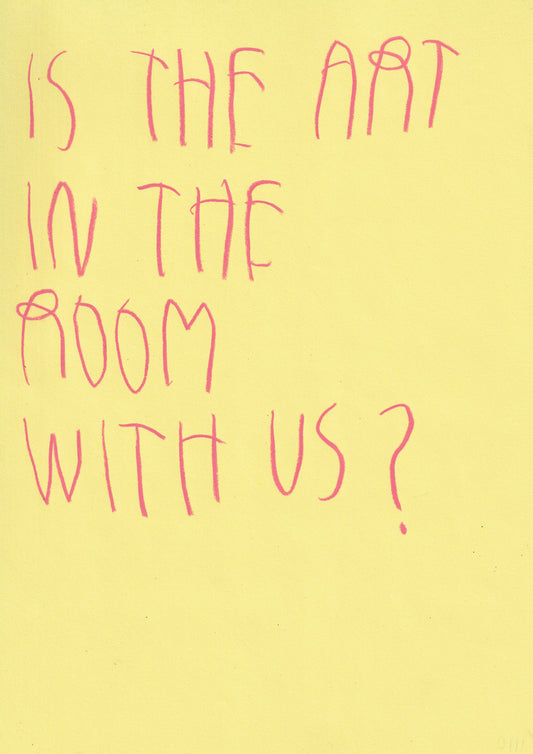 IS THE ART
IN THE
ROOM
WITH US?